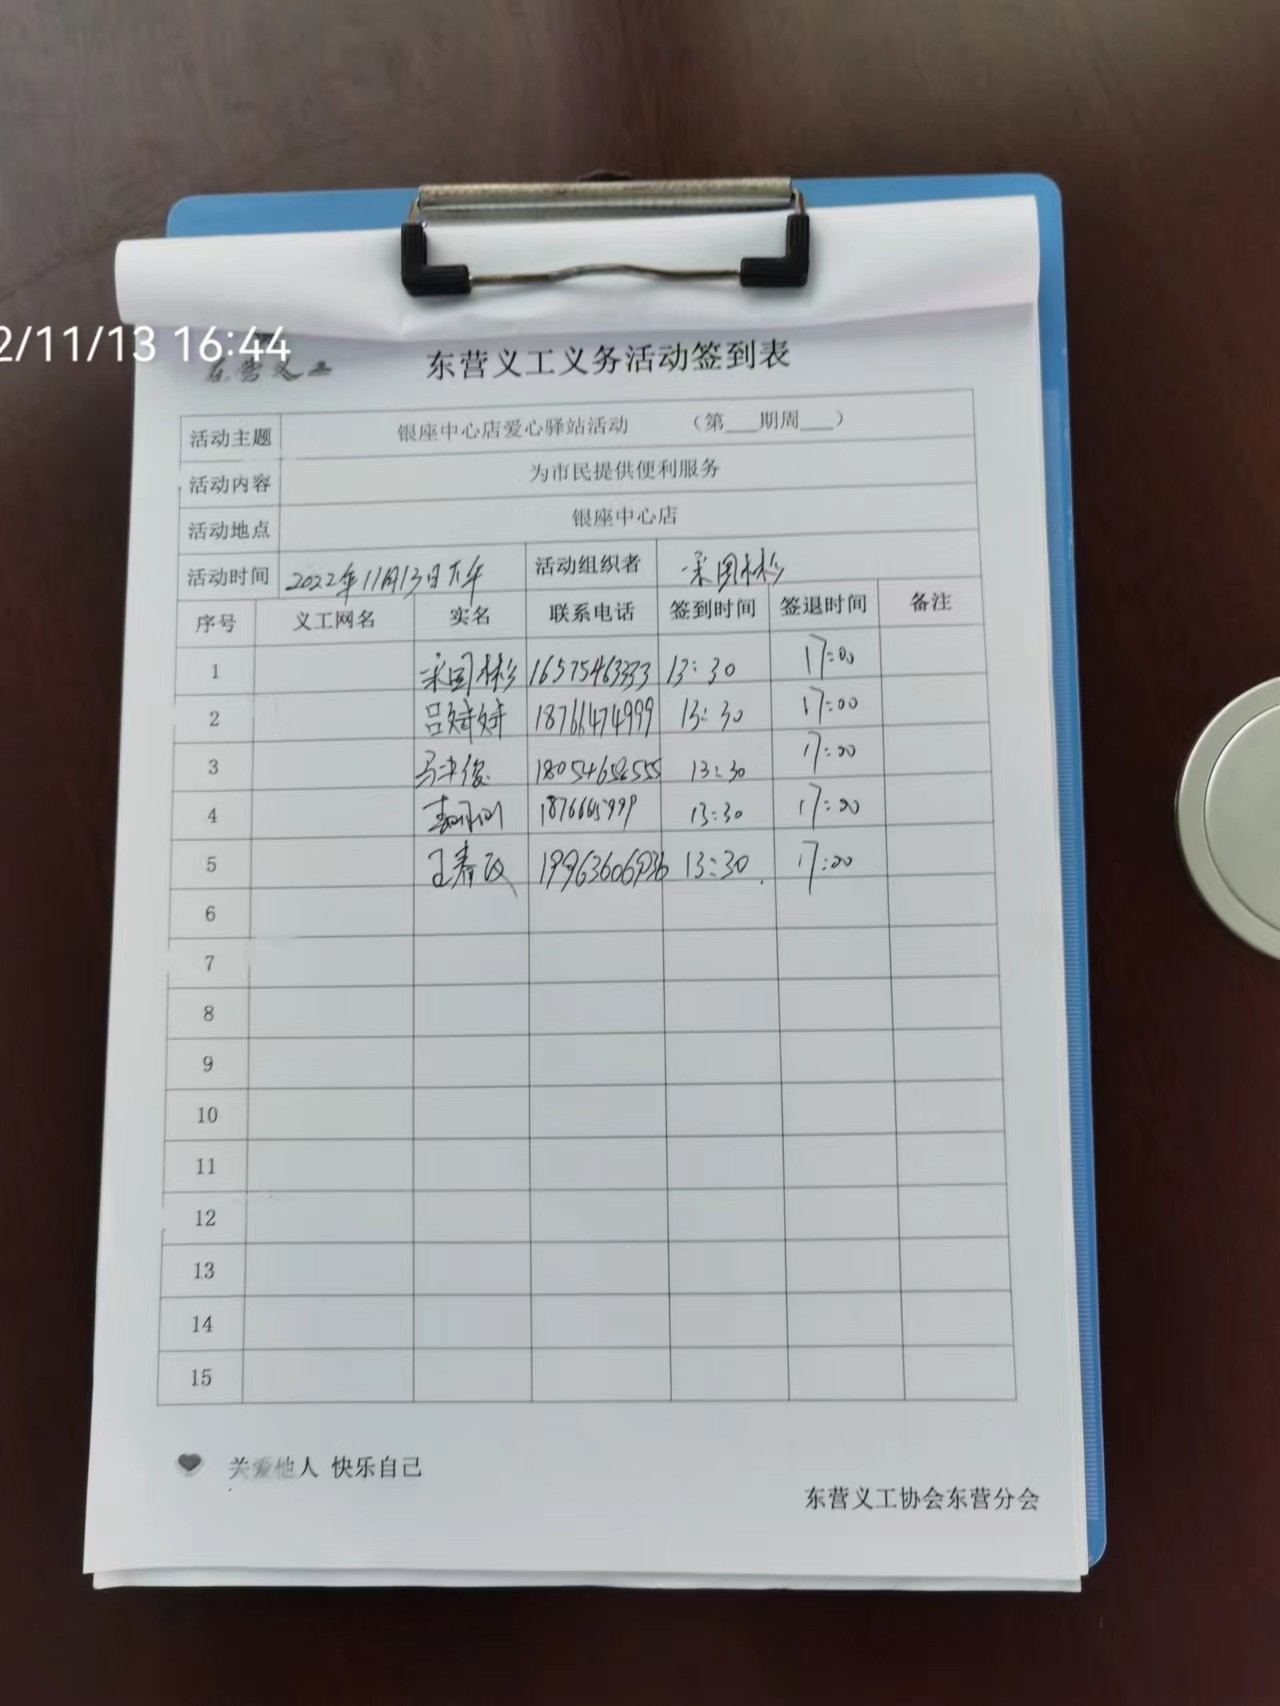 2/11/13 16:44
东营义工
东营义工义务活动签到表
活动主题 银座中心店爱心驿站活动 （第___期周___）
活动内容 为市民提供便利服务
活动地点 银座中心店
活动时间 2022年11月13日下午 活动组织者
序号 义工网名 实名 联系电话 签到时间 签退时间 备注
1 16575463333 13:30 17:00
2 吕斌斌 18766474999 13:30 17:00
3 13:30 17:00
4 13:30 17:00
5 王春 13:30 17:00
6
7
8
9
10
11
12
13
14
15
关爱他人 快乐自己
东营义工协会东营分会